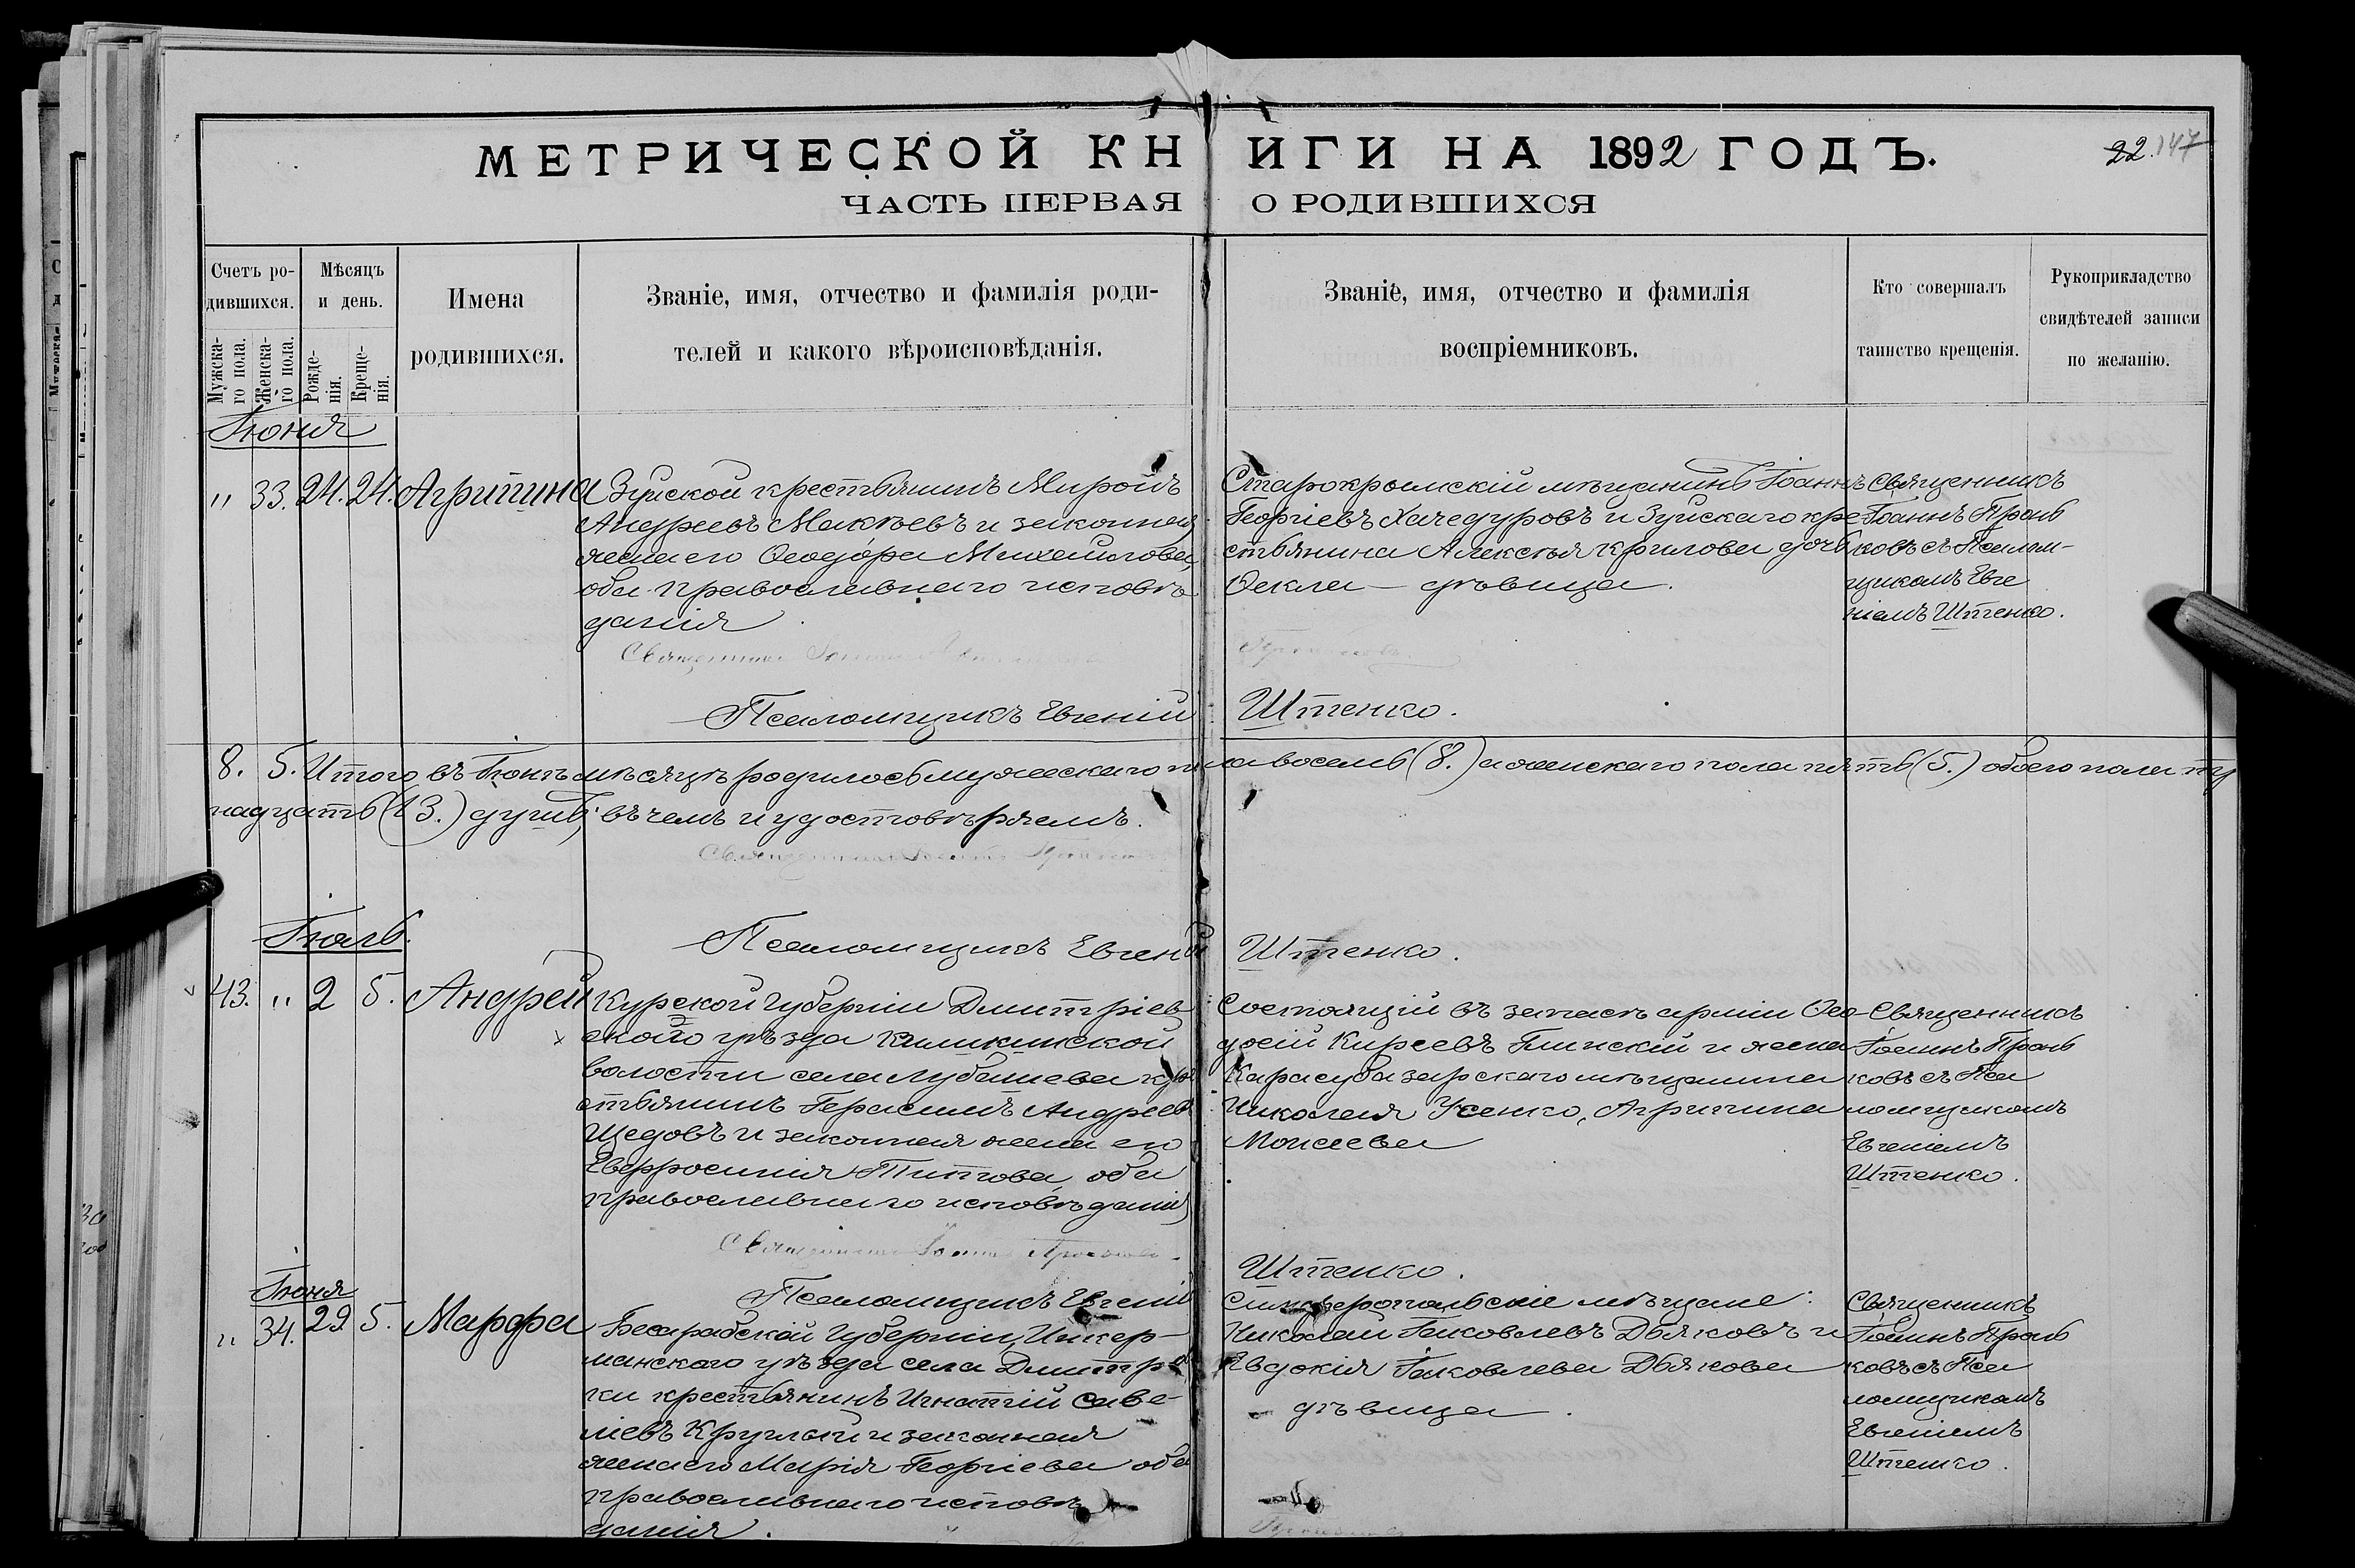 МЕТРИЧЕСКОЙ КНИГИ НА 1892 ГОДЪ.
22. 147
ЧАСТЬ ПЕРВАЯ О РОДИВШИХСЯ
Счетъ родившихся.
Мужскаго пола.
Женскаго пола.
Мѣсяцъ и день.
Рожденія.
Крещенія.
Имена родившихся.
Званіе, имя, отчество и фамилія роди-
телей и какого вѣроисповѣданія.
Званіе, имя, отчество и фамилія
воспріемниковъ.
Кто совершалъ
таинство крещенія.
Рукоприкладство
свидѣтелей записи
по желанію.
Іюня
" 33. 24. 24. Агрипина
Зуйской крестьянинъ Миронъ
Андреевъ и законная
жена его Ѳеодора Михаилова,
оба православнаго исповѣ
данія
Старокрымскій мѣщанинъ Іоаннъ
Георгіевъ Хачедуровъ и Зуйскаго кре
стьянина Алексѣя Крилова дочь
Ѳекла - дѣвица.
Священникъ
Іоаннъ Прань
ковъ съ Псалом-
щикомъ Евге
ніемъ Штенко.
Священникъ Іоаннъ
Псаломщикъ Евгеній Штенко.
8. 5. Итого въ Іюнѣ мѣсяцѣ родилось мужескаго пола восемь (8.) а женскаго пола пять (5.) обоего пола три
надцать (13.) душъ; въ чемъ и удостовѣряемъ.
Священникъ Іоаннъ
Псаломщикъ Евгеній Штенко.
Іюль.
43. " 2 5. Андрей
Курской Губерніи Дмитріев
скаго уѣзда
волости села Лубашева кре
стьянинъ Герасимъ Андреевъ
Щедовъ и законная жена его
Евфросинія Титова, оба
православнаго исповѣданія
Состоящій въ запасѣ арміи Ѳео
досій Киреевъ и жена
Карасубазарскаго мѣщанина
Николая Усенко, Агрипина
Моисеева
Священникъ
Іоаннъ Прань
ковъ съ Пса
ломщикомъ
Евгеніемъ
Штенко.
Священникъ Іоаннъ
Псаломщикъ Евгеній Штенко.
Іюня
" 34. 29. 5. Марфа
Бесарабской Губерніи, Анкер-
манскаго уѣзда села Дмитров
ки крестьянинъ Игнатій Саве-
ліевъ Круглый и законная
жена его Марія Георгіева оба
православнаго исповѣ
данія.
Симферопольскіе мѣщане:
Николай Іаковлевъ Дьяковъ и
Евдокія Іаковлева Дьякова
дѣвица.
Священникъ
Іоаннъ Прань
ковъ съ Пса
ломщикомъ
Евгеніемъ
Штенко.